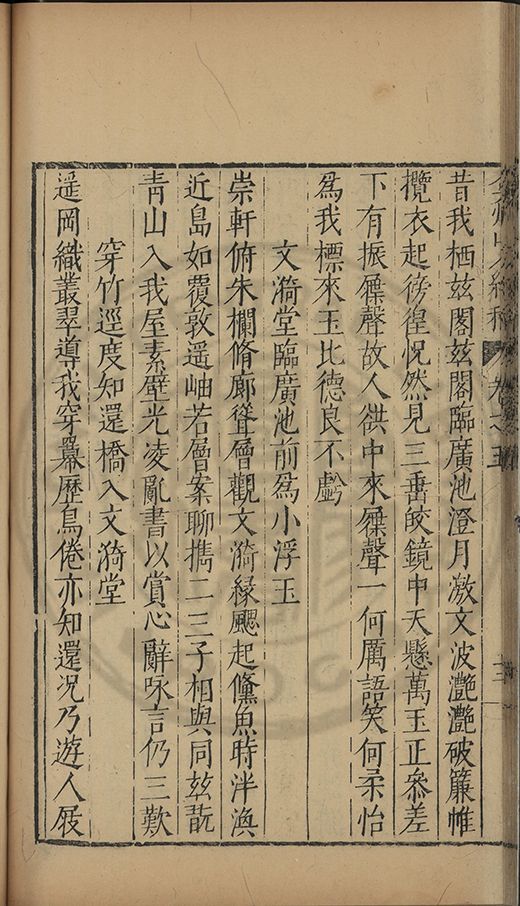 卷之五
昔我栖玆閣玆閣臨廣池澄月激文波灔灔破簾帷
攬衣起徬徨怳然見三垂皎鏡中天懸萬玉正參差
下有振屧聲故人谼中來屧聲一何厲語笑何柔怡
爲我標來玉比德良不虧
文漪堂臨廣池前爲小浮玉
崇軒俯朱欄脩廊聳層觀文漪縁颸起儵魚時泮渙
近島如覆敦遥岫若層案聊携二三子相與同玆翫
青山入我屋素壁光凌亂書以賞心辭咏言仍三歎
穿竹逕度知還橋入文漪堂
遥岡織叢翠導我穿冪歷鳥倦亦知還况乃遊人屐